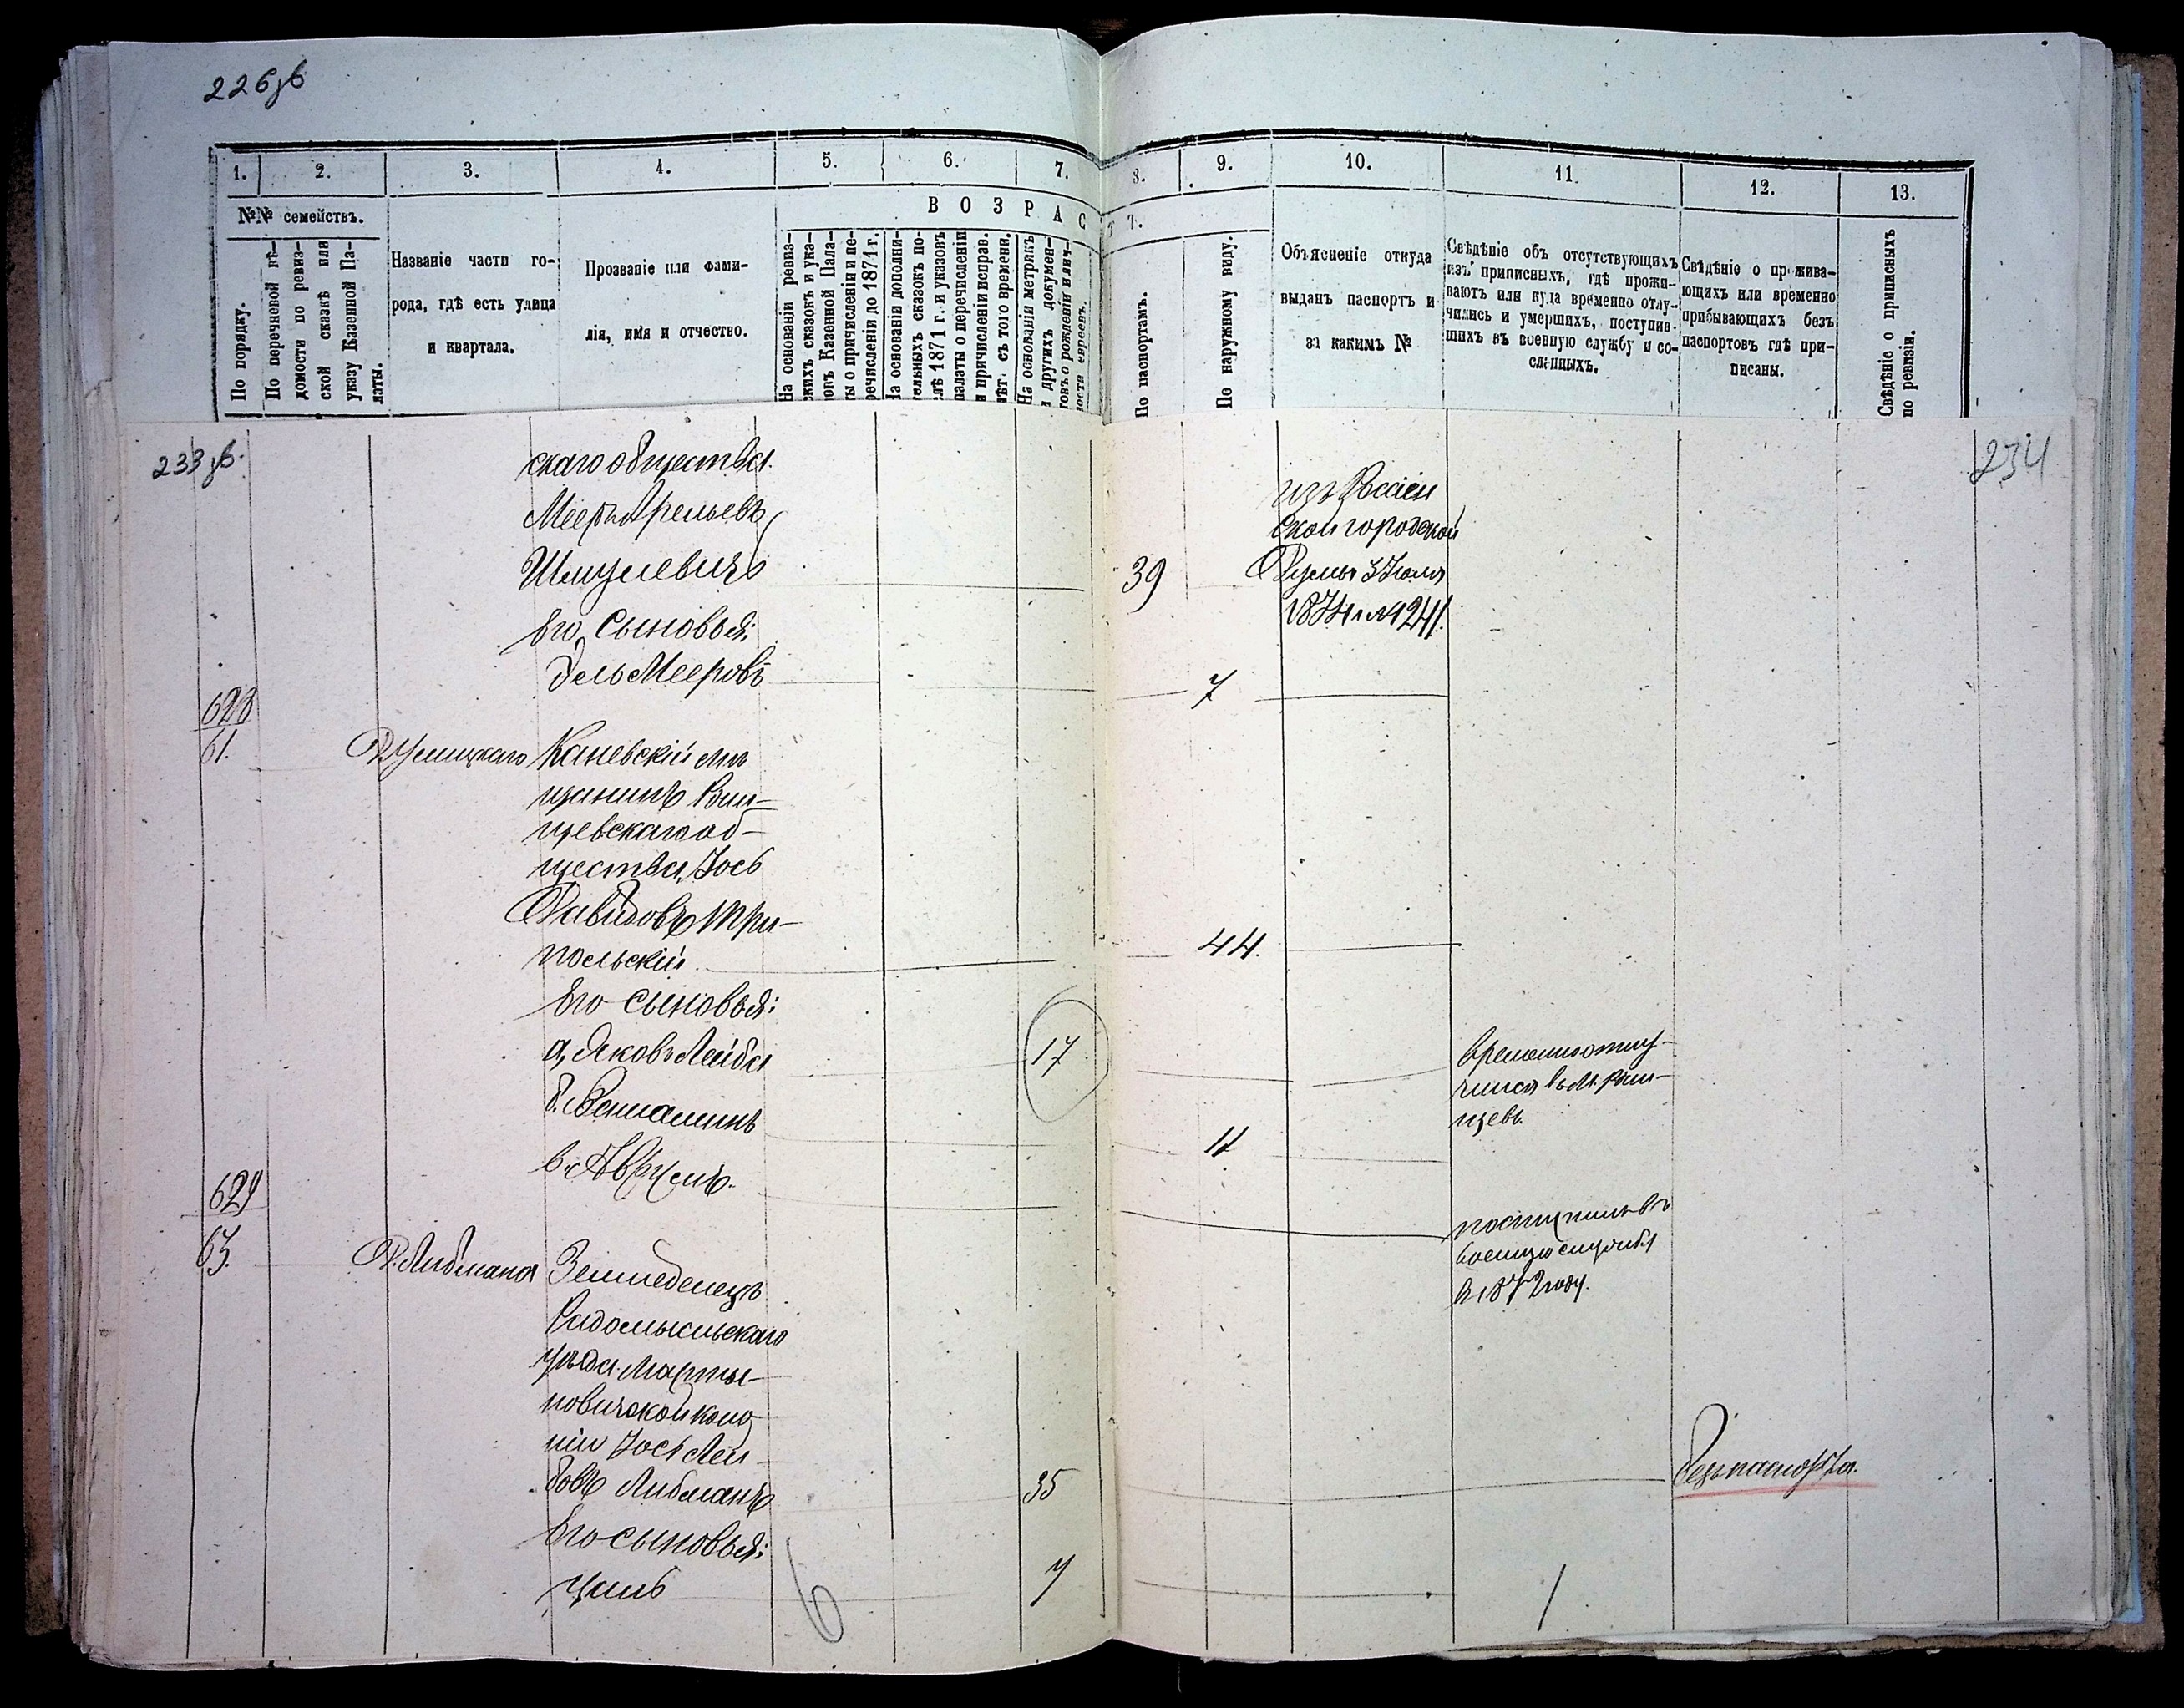 226 зб
1. 2. 3. 4. 5. 6. 7. 8. 9. 10. 11. 12. 13.
№№ семействъ.
По порядку.
По перечневой вѣ-
домости по ревиз-
ской сказкѣ или
указу Казенной Па-
латы.
Названіе части го-
рода, гдѣ есть улица
и квартала.
Прозваніе или фами-
лія, имя и отчество.
ВОЗРАСТЪ.
На основаніи ревиз-
скихъ сказокъ и ука-
зовъ Казенной Пала-
ты о причисленіи и пе-
речисленіи до 1871 г.
На основаніи дополни-
тельныхъ сказокъ по-
слѣ 1871 г. и указовъ
палаты о перечисленіи
и причисленіи исправ.
лѣтъ съ того времени.
На основаніи метрикъ
и другихъ докумен-
товъ о рожденіи и лич-
ности евреевъ.
По паспортамъ.
По наружному виду.
Объясненіе откуда
выданъ паспортъ и
за какимъ №
Свѣдѣніе объ отсутствующихъ
изъ приписныхъ, гдѣ прожи-
ваютъ или куда временно отлу-
чились и умершихъ, поступив-
шихъ въ военную службу и со-
сланныхъ.
Свѣдѣніе о прожива-
ющихъ или временно
прибывающихъ безъ
паспортовъ гдѣ при-
писаны.
Свѣдѣніе о приписныхъ
по ревизіи.
233 зб.
234
скаго общества
Мееръ Арельевъ
Шмулевичъ
39
изъ Россіен
ской городской
Думы 3 Іюля
1874 г. № 1241.
Его сыновья:
Эль Мееровъ
7
628
61.
Каневскій мѣ
щанинъ Ржи-
щевскаго об-
щества, Іось
Давидовъ Три-
польскій
44.
Его сыновья:
а, Яковъ Лейба
17
временно отлу-
чился въ м. Ржи-
щевъ.
б. Веніаминъ
11
в. Аврумъ.
поступилъ въ
военную службу
въ 1872 году.
629
63.
Д. Либмана
Земледелецъ
Радомысльскаго
уѣзда Марты-
новичской коло-
ніи Іось Лей-
бовъ Либманъ
35
Безъ паспорта.
Его сыновья:
7
6
1